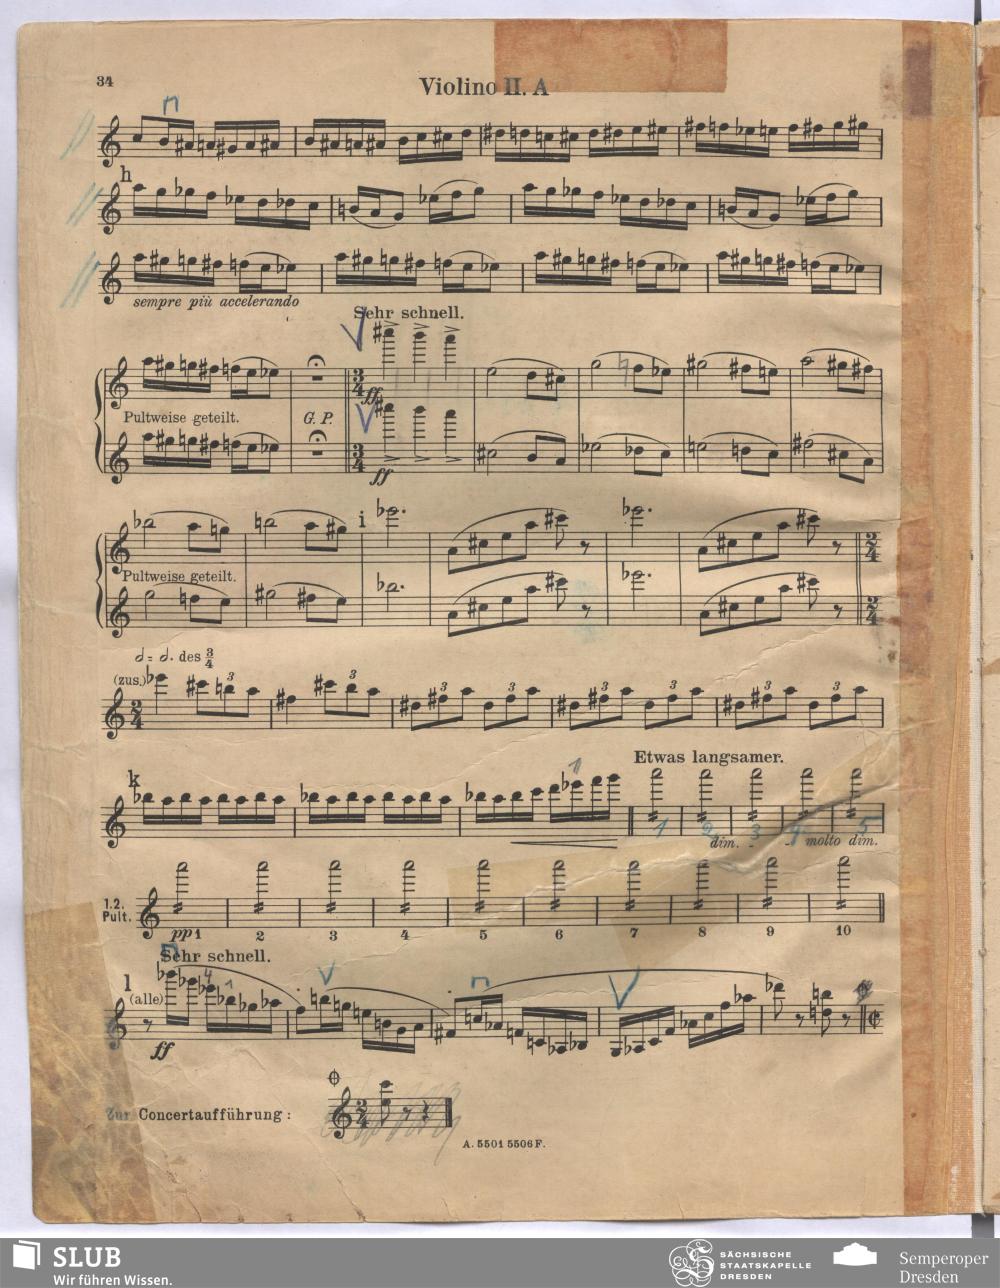 34
Violino II. A
h
sempre più accelerando
Sehr schnell.
Pultweise geteilt.
G. P.
3 4
ff
3 4
ff
i
Pultweise geteilt.
2 4
2 4
𝅗𝅥 = 𝅗𝅥. des 3/4
(zus.)
2 4
3 3 3 3 3 3 3 3
k
Etwas langsamer.
1 2 3 4 5
dim. - - molto dim.
1.2. Pult.
pp 1 2 3 4 5 6 7 8 9 10
Sehr schnell.
l
(alle)
4 1
ff
Zur Concertaufführung:
2 4
A. 5501 5506 F.
SLUB
Wir führen Wissen.
SÄCHSISCHE
STAATSKAPELLE
DRESDEN
Semperoper
Dresden